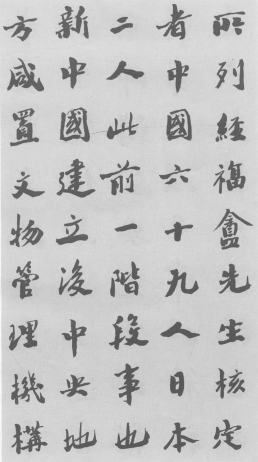 所列經福盦先生核定
者中國六十九人日本
二人此前一階段事也
新中國建立後中央地
方咸置文物管理機構